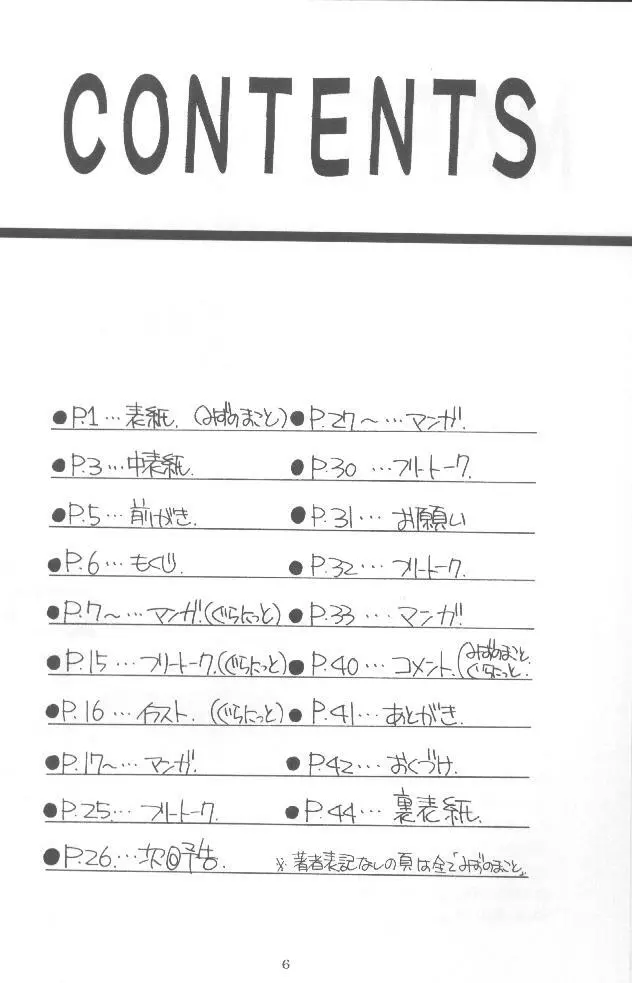 CONTENTS
●P.1…表紙.(みずのまこと)
●P.3…中表紙.
●P.5…前がき.
●P.6…もくじ.
●P.7~…マンガ.(ぐらにっと)
●P.15…フリートーク.(ぐらにっと)
●P.16…イラスト.(ぐらにっと)
●P.17~…マンガ.
●P.25…フリートーク.
●P.26…次回予告.
●P.27~…マンガ.
●P.30…フリートーク.
●P.31…お願い
●P.32…フリートーク.
●P.33…マンガ.
●P.40…コメント.(みずのまこと.
ぐらにっと.)
●P.41…あとがき.
●P.42…おくづけ.
●P.44…裏表紙.
※著者表記なしの頁は全て「みずのまこと」
6